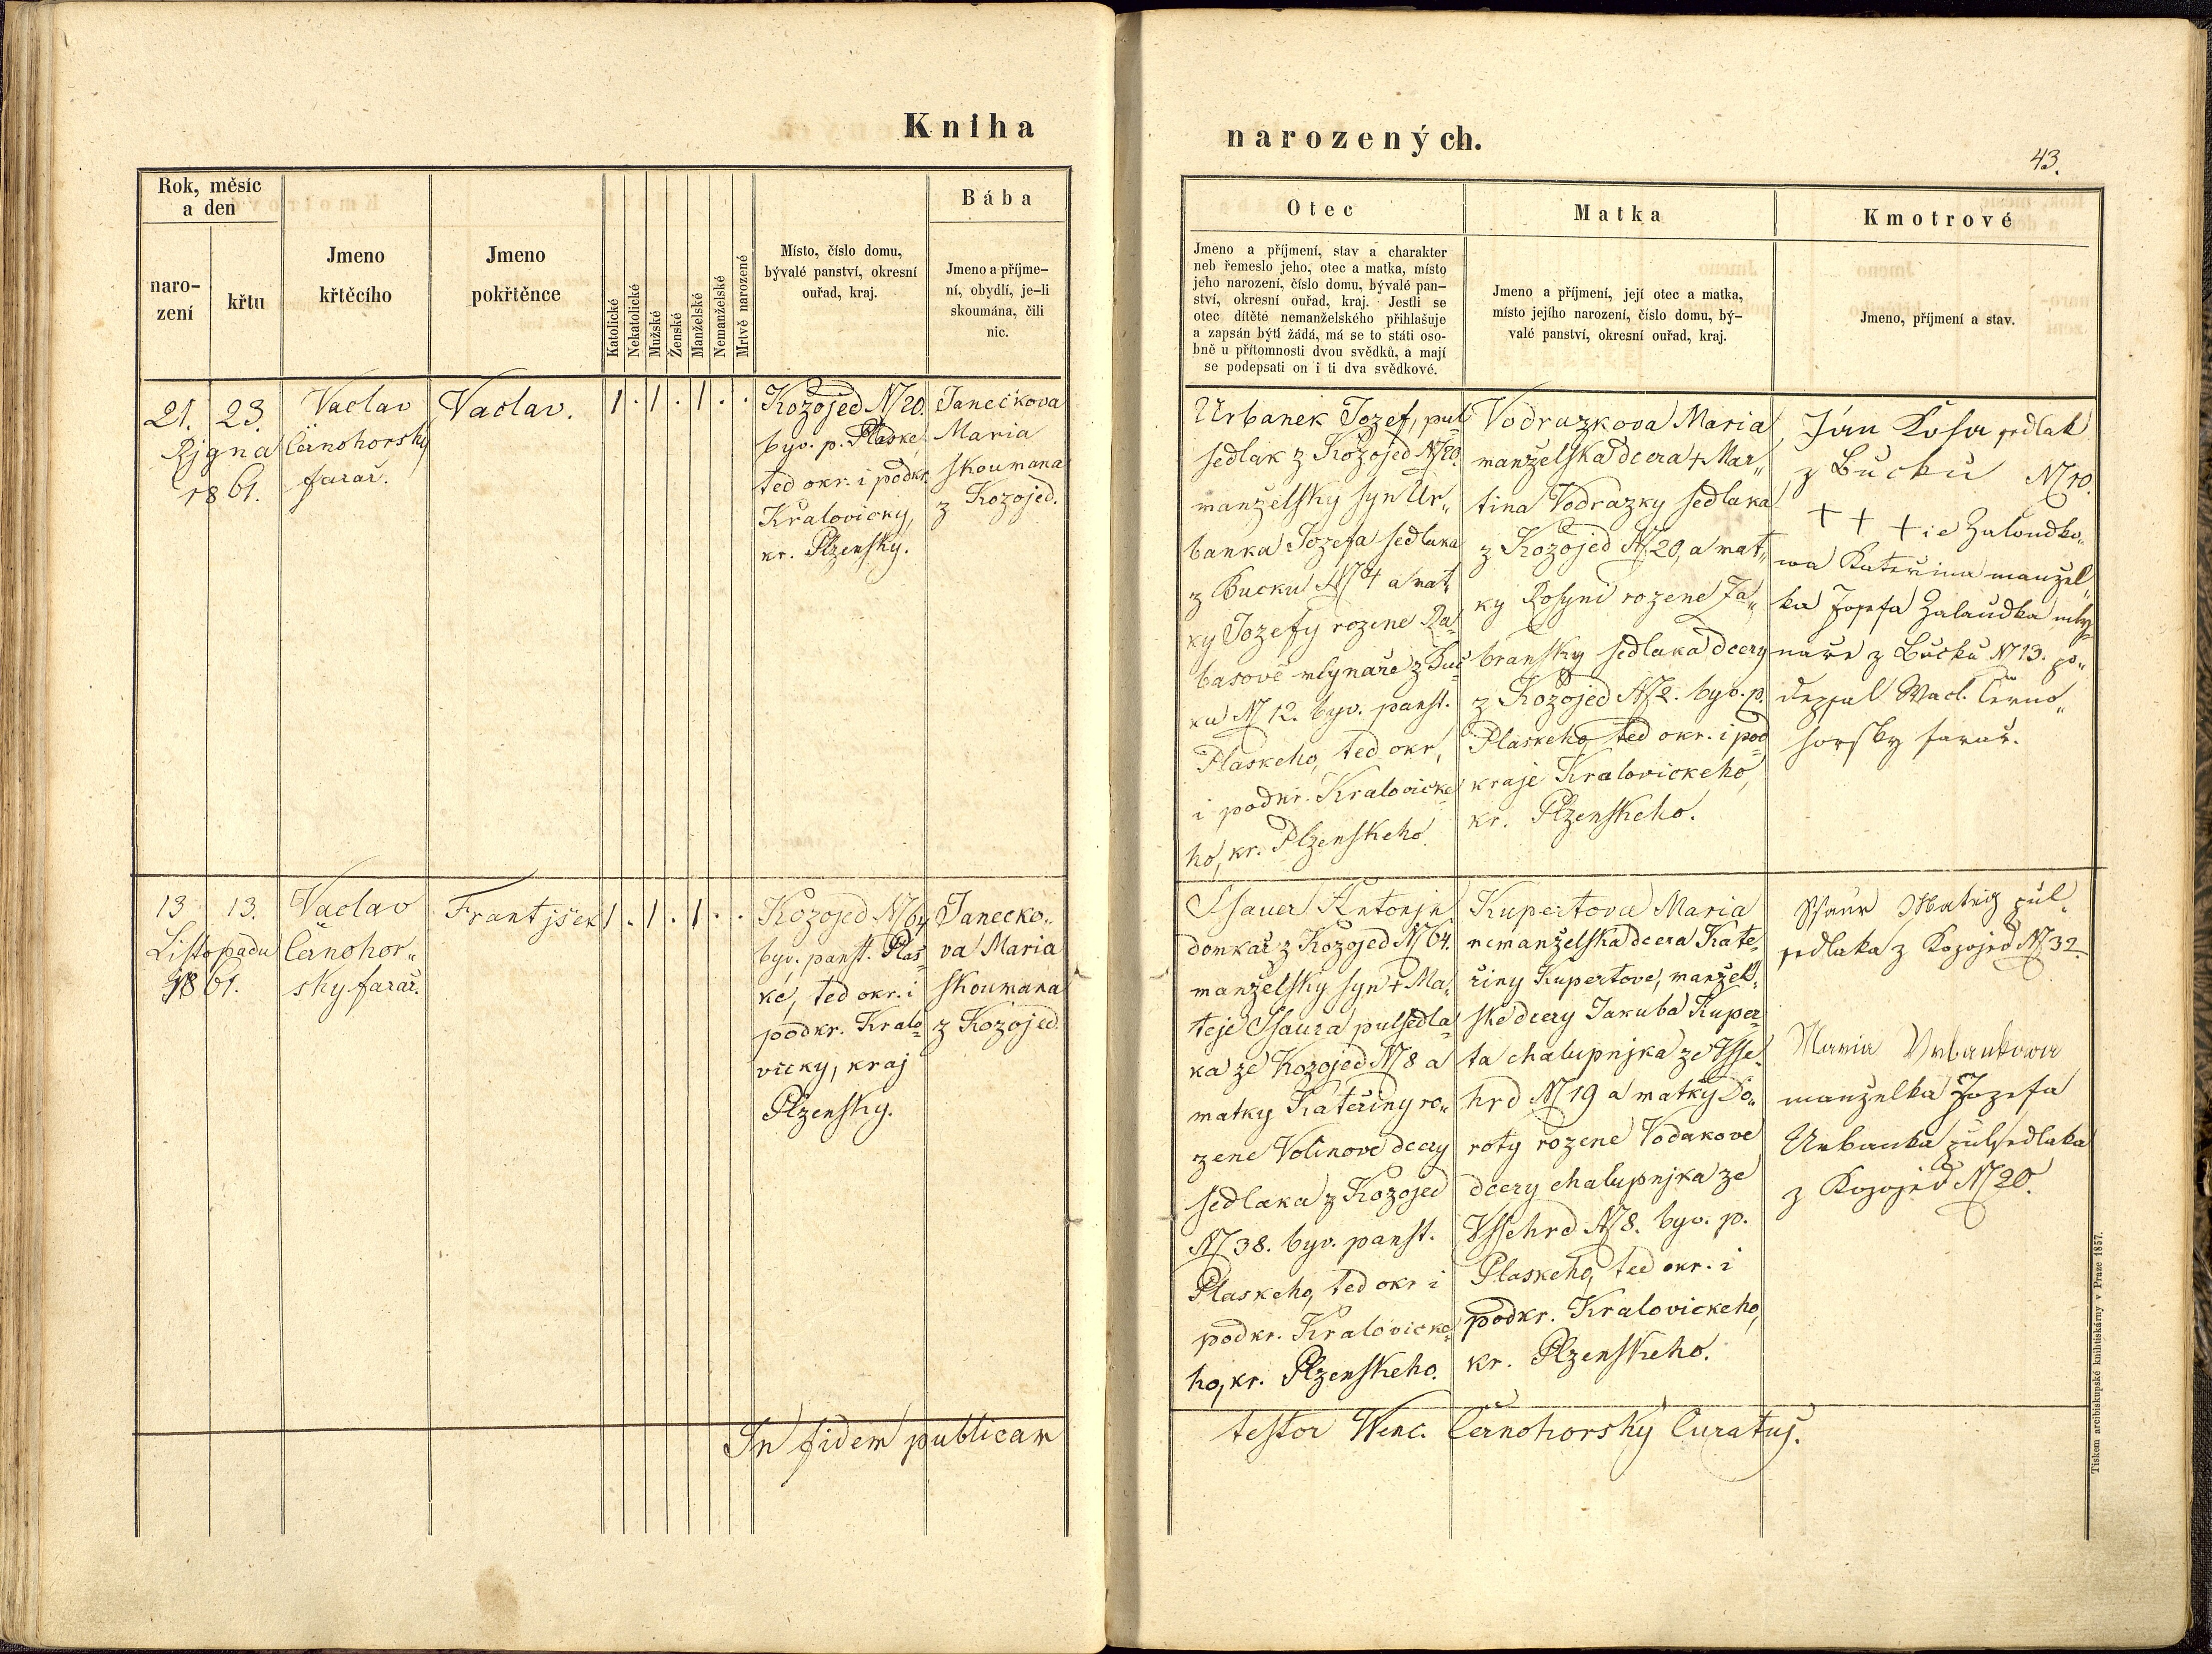 Kniha
narozených.
43.
Rok, měsíc
a den
naro-
zení
křtu
Jmeno
křtěcího
Jmeno
pokřtěnce
Katolické
Nekatolické
Mužské
Ženské
Manželské
Nemanželské
Mrtvě narozené
Místo, číslo domu,
bývalé panství, okresní
ouřad, kraj.
Bába
Jmeno a příjme-
ní, obydlí, je-li
skoumána, čili
nic.
Otec
Jmeno a příjmení, stav a charakter
neb řemeslo jeho, otec a matka, místo
jeho narození, číslo domu, bývalé pan-
ství, okresní ouřad, kraj. Jestli se
otec dítěte nemanželského přihlašuje
a zapsán býti žádá, má se to státi oso-
bně u přítomnosti dvou svědků, a mají
se podepsati on i ti dva svědkové.
Matka
Jmeno a příjmení, její otec a matka,
místo jejího narození, číslo domu, bý-
valé panství, okresní ouřad, kraj.
Kmotrové
Jmeno, příjmení a stav.
21. 23.
Rjgna
1861.
Vaclav
Černohorsky
farař.
Vaclav.
1 . 1 . 1 . .
Kozojed N 20.
byv. p. Plaske,
ted okr. i podkr.
Kralovicky,
kr. Plzensky.
Janečkova
Maria
skoumana
z Kozojed.
Urbanek Jozef, pul-
sedlak z Kozojed N 20.
manzelsky syn Ur„
banka Jozefa sedlaka
z Bucku N 4 a mat„
ky Jozefy rozene Ra-
basově mlynaře z Buč-
ku N 12. byv. panst.
Plaskeho, ted okr,
i podkr. Kralovicke-
ho, kr. Plzenskeho.
Vodrazkova Maria
manzelska dcera + Mar„
tina Vodrazky sedlaka
z Kozojed N 20, a mat„
ky Rosyni rozene Za„
bransky sedlaka dcery
z Kozojed N 2. byv. p.
Plaskeho, ted okr. i pod
kraje Kralovickeho,
kr. Plzenskeho.
Ján Kosa sedlak
z Bucku N 10.
+ + + ie Zaloudko„
wa Kateřina manžel„
ka Josefa Zalaudka mly-
nare z Bučku N 13. po„
depsal Wacl. Černo„
horsky farař.
13 13.
Listopadu
1861.
Vaclav
Černohor„
sky farař.
Frantjšek
1 . 1 . 1 . .
Kozojed N 64
byv. panst. Plas-
ke, ted okr. i
podkr. Kralo-
vicky, kraj
Plzensky.
Janecko„
va Maria
skoumana
z Kozojed
Ssauer Antonjn
domkař z Kozojed N 64.
manželsky syn + Ma-
teje Ssaura pulsedla-
ka ze Kozojed N 8 a
matky Kateřiny ro„
zene Volinove dcery
sedlaka z Kozojed
N 38. byv. panst.
Plaskeho, ted okr i
podkr. Kralovicke-
ho, kr. Plzenskeho.
Kupertova Maria
nemanželska dcera Kate-
řiny Kupertove, manžel-
ske dcery Jakuba Kuper-
ta chalupnjka ze Vsse-
hrd N 19 a matky Do„
roty rozene Vodakove
dcery chalupnjka ze
Vssehrd N 8. byv. p.
Plaskeho, ted okr. i
podkr. Kralovickeho,
kr. Plzenskeho.
Ssaur Matěg pul-
sedlaka z Kozojed N 32.
Maria Urbankowa
manzelka Jozefa
Urbanka pulsedlaka
z Kozojed N 20.
In fidem publicam
testor Wenc. Černohorský Curatus.
Tiskem arcibiskupské knihtiskárny v Praze 1857.